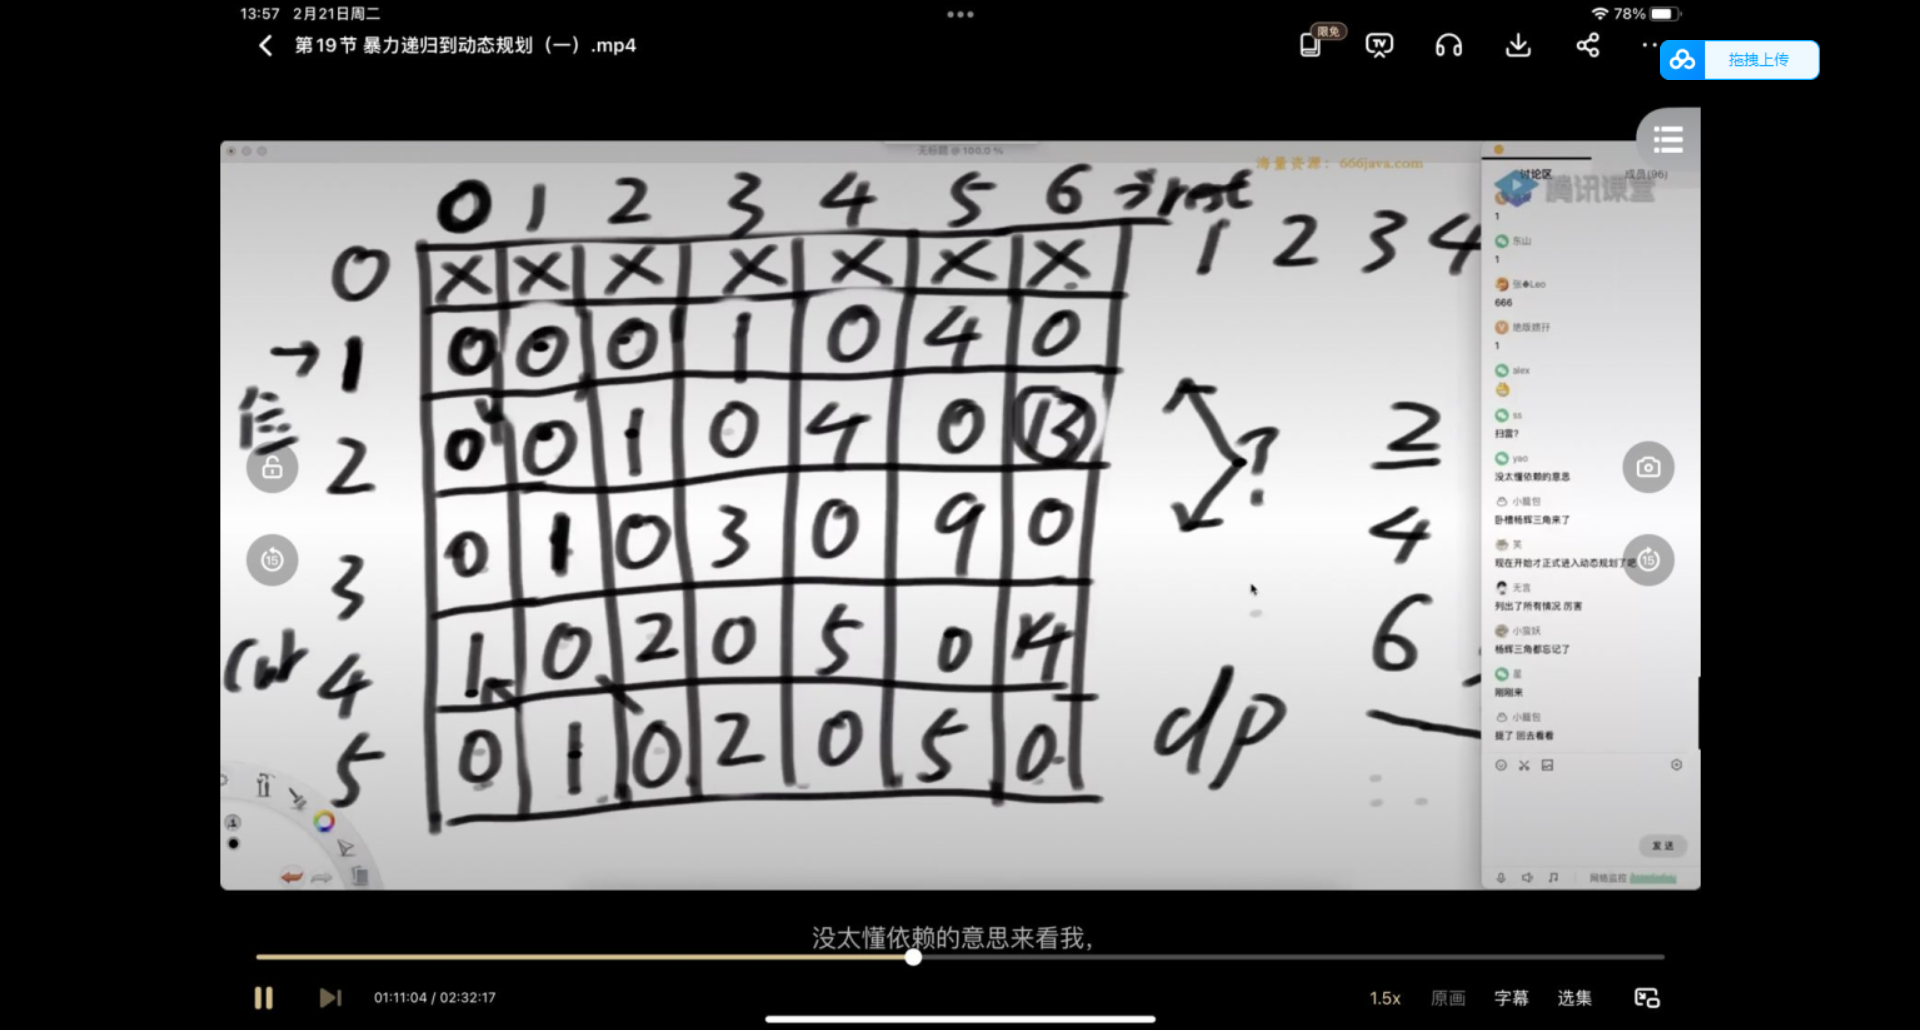 13:57 2月21日周二
78%
第19节 暴力递归到动态规划（一）.mp4
限免
TV
拖拽上传
无标题 @ 100.0 %
海量资源：666java.com
讨论区 成员(96)
腾讯课堂
0 1 2 3 4 5 6 rest
1 2 3 4
0 X X X X X X X
→ 1 0 0 0 1 0 4 0
2 0 0 1 0 4 0 13
3 0 1 0 3 0 9 0
cur 4 1 0 2 0 5 0 14
5 0 1 0 2 0 5 0
?
2
4
6
dp
1
东山
1
张♠Leo
666
1
alex
ss
扫雷?
yao
没太懂依赖的意思
小笼包
卧槽杨辉三角来了
笑
现在开始才正式进入动态规划了吧
无言
列出了所有情况 厉害
杨辉三角都忘记了
星
刚刚来
小笼包
提了 回去看看
发送
网络监控
15
15
没太懂依赖的意思来看我,
01:11:04 / 02:32:17
1.5x 原画 字幕 选集